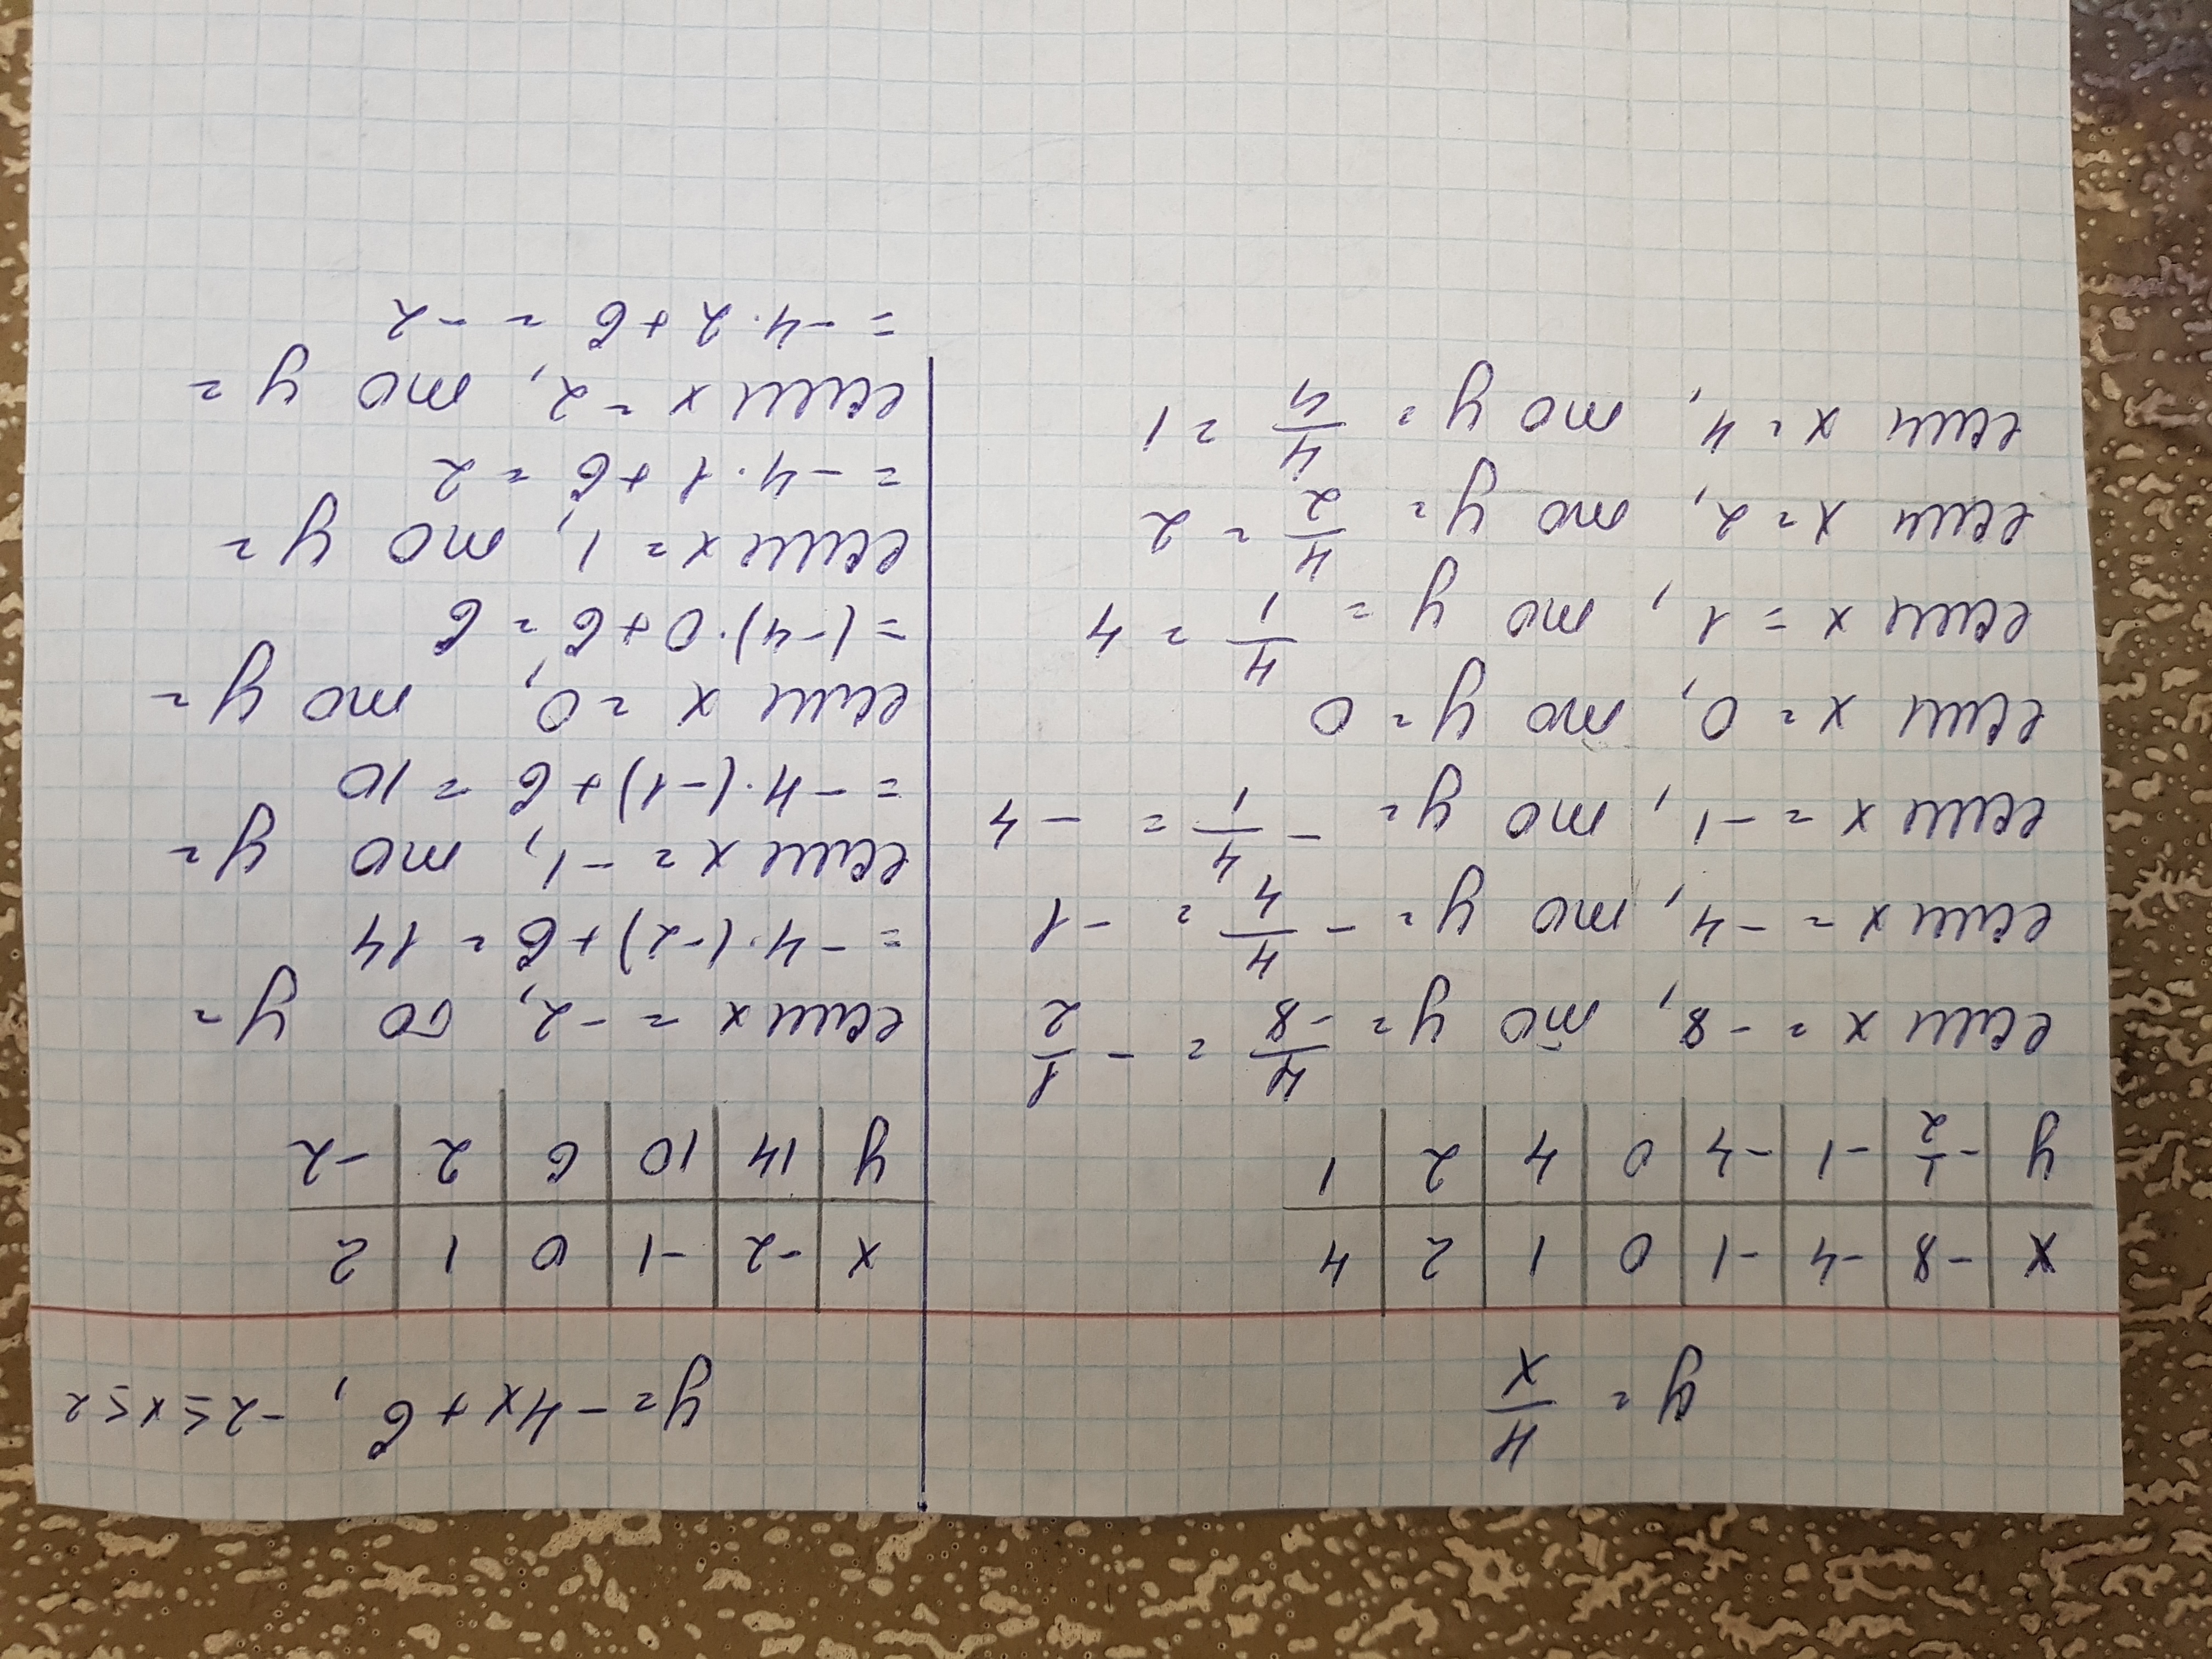 y = 4/x
x | -8 | -4 | -1 | 0 | 1 | 2 | 4
y | -1/2 | -1 | -4 | 0 | 4 | 2 | 1
если x = -8, то y = 4/-8 = -1/2
если x = -4, то y = -4/4 = -1
если x = -1, то y = -4/1 = -4
если x = 0, то y = 0
если x = 1, то y = 4/1 = 4
если x = 2, то y = 4/2 = 2
если x = 4, то y = 4/4 = 1
y = -4x + 6, -2 ≤ x ≤ 2
x | -2 | -1 | 0 | 1 | 2
y | 14 | 10 | 6 | 2 | -2
если x = -2, то y =
= -4·(-2) + 6 = 14
если x = -1, то y =
= -4·(-1) + 6 = 10
если x = 0, то y =
= (-4)·0 + 6 = 6
если x = 1, то y =
= -4·1 + 6 = 2
если x = 2, то y =
= -4·2 + 6 = -2